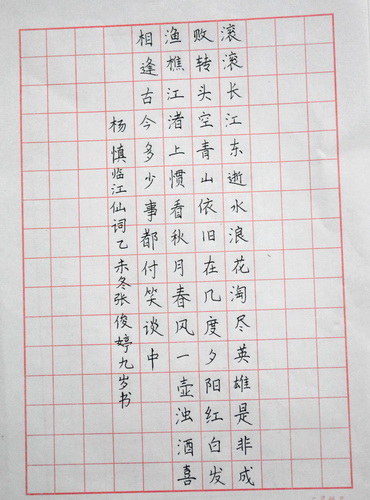 滚滚长江东逝水浪花淘尽英雄是非成
败转头空青山依旧在几度夕阳红白发
渔樵江渚上惯看秋月春风一壶浊酒喜
相逢古今多少事都付笑谈中
杨慎临江仙词乙未冬张俊婷九岁书